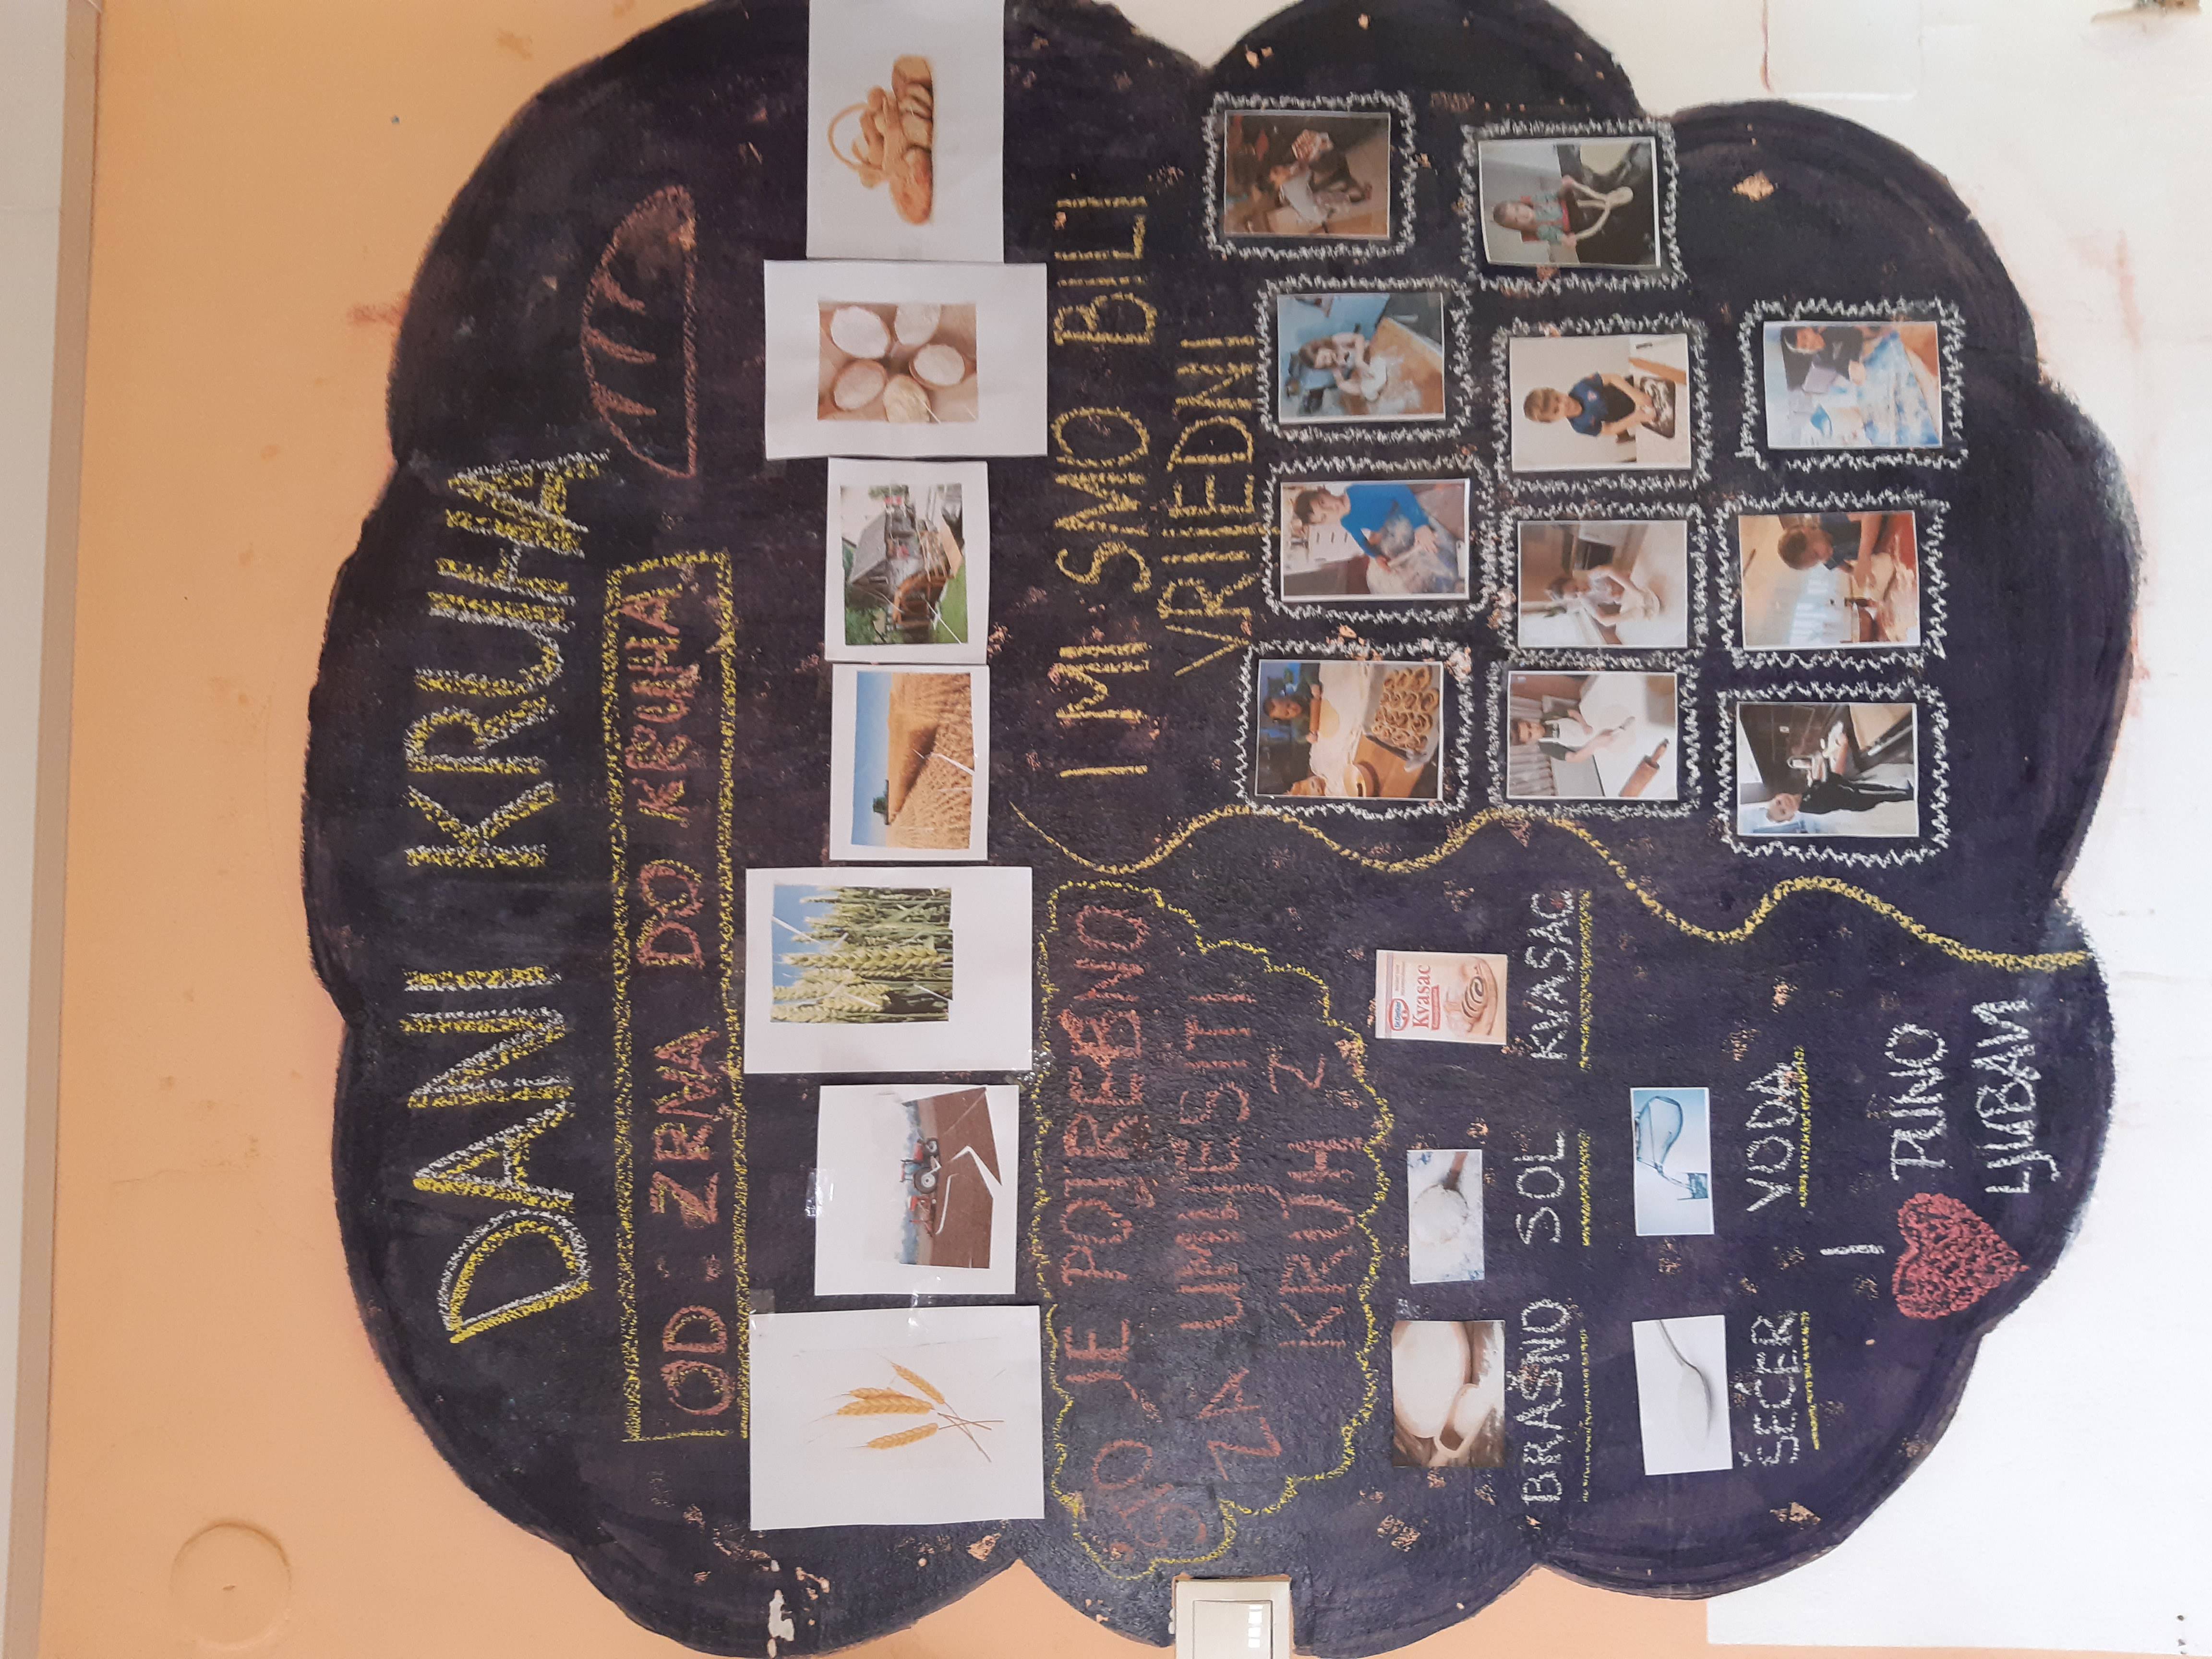 DANI KRUHA
OD ZRNA DO KRUHA
ŠO JE POTREBNO
ZA UMIJESITI
KRUH?
I MI SMO BILI
VRIJEDNI
Kvasac
BRAŠNO SOL KVASAC
ŠEĆER VODA
I
PUNO
LJUBAVI